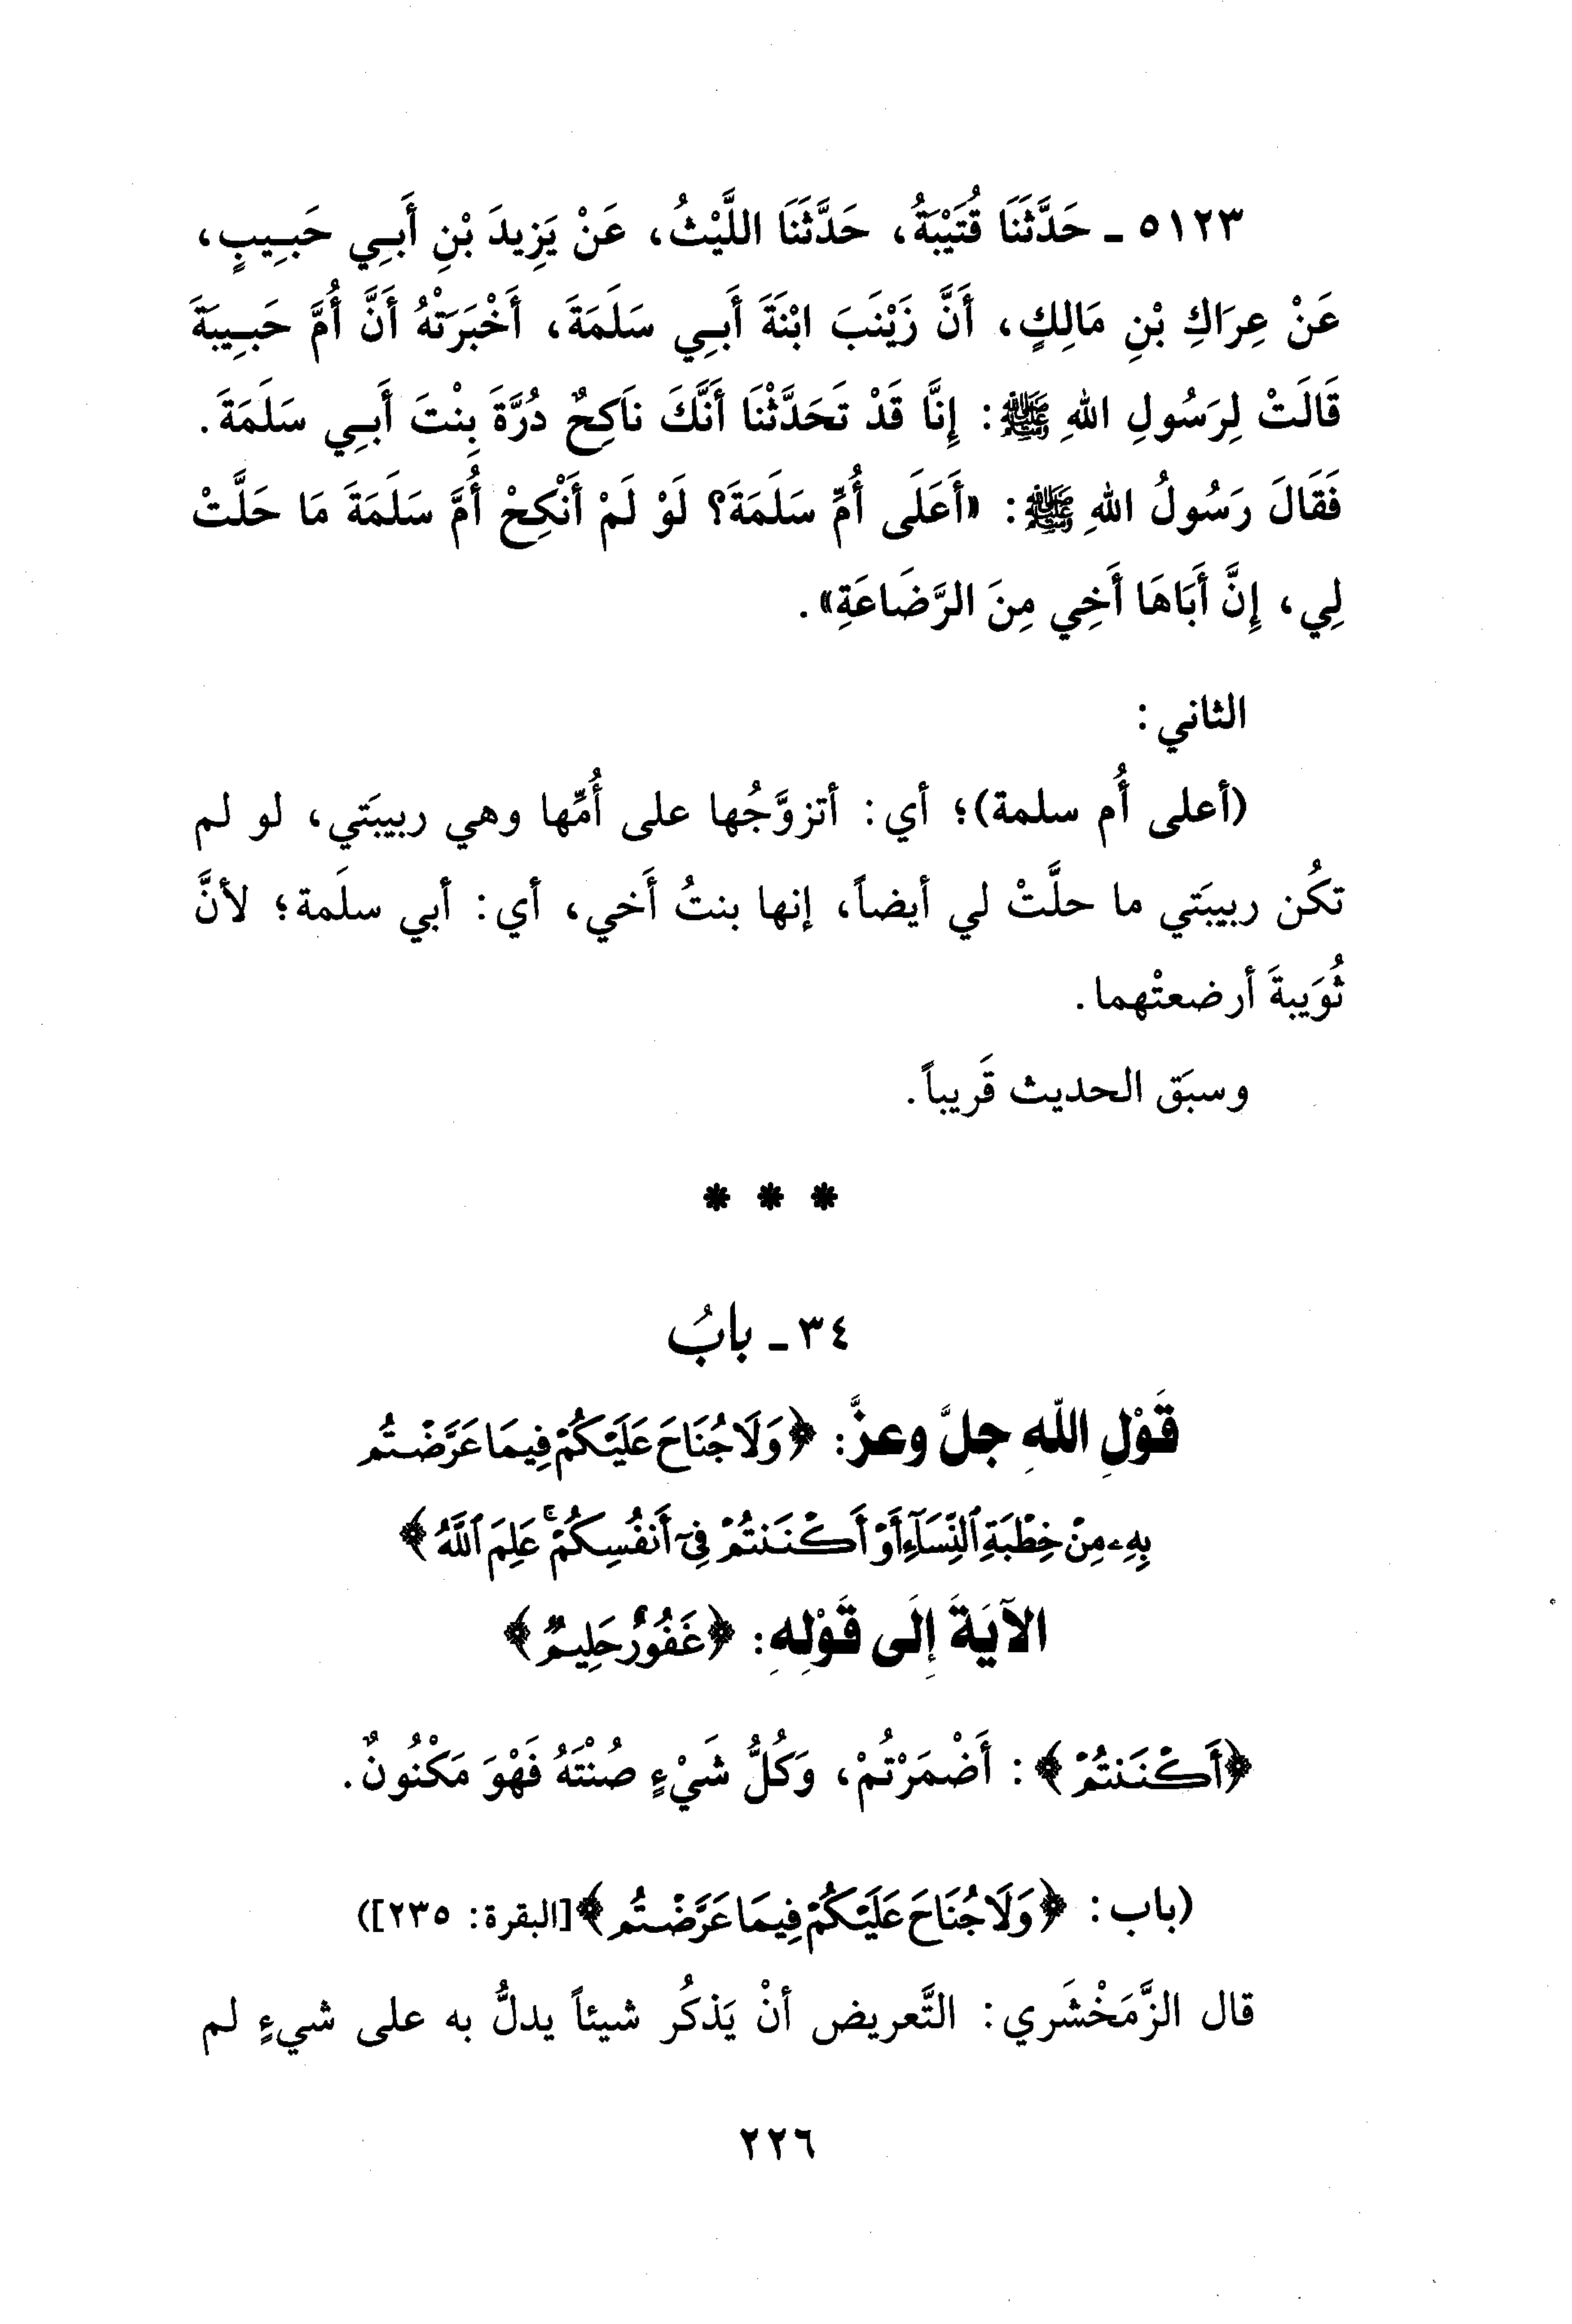 ٥١٢٣ ـ حَدَّثَنَا قُتَيْبَةُ، حَدَّثَنَا اللَّيْثُ، عَنْ يَزِيدَ بْنِ أَبِي حَبِيبٍ،
عَنْ عِرَاكِ بْنِ مَالِكٍ، أَنَّ زَيْنَبَ ابْنَةَ أَبِي سَلَمَةَ، أَخْبَرَتْهُ أَنَّ أُمَّ حَبِيبَةَ
قَالَتْ لِرَسُولِ اللهِ ﷺ: إِنَّا قَدْ تَحَدَّثْنَا أَنَّكَ نَاكِحٌ دُرَّةَ بِنْتَ أَبِي سَلَمَةَ.
فَقَالَ رَسُولُ اللهِ ﷺ: «أَعَلَى أُمِّ سَلَمَةَ؟ لَوْ لَمْ أَنْكِحْ أُمَّ سَلَمَةَ مَا حَلَّتْ
لِي، إِنَّ أَبَاهَا أَخِي مِنَ الرَّضَاعَةِ».
الثاني:
(أعلى أُم سلمة)؛ أي: أتزوَّجُها على أُمِّها وهي ربيبَتي، لو لم
تكُن ربيبَتي ما حلَّتْ لي أيضاً، إنها بنتُ أَخي، أي: أبي سلَمة؛ لأنَّ
ثُوَيبةَ أرضعتْهما.
وسبَق الحديث قَريباً.
* * *
٣٤ ـ بابُ
قَوْلِ اللَّهِ جلَّ وعزَّ: ﴿وَلَا جُنَاحَ عَلَيْكُمْ فِيمَا عَرَّضْتُم
بِهِۦ مِنْ خِطْبَةِ ٱلنِّسَآءِ أَوْ أَكْنَنتُمْ فِىٓ أَنفُسِكُمْ ۚ عَلِمَ ٱللَّهُ﴾
الآيَةَ إِلَى قَوْلِهِ: ﴿غَفُورٌ حَلِيمٌ﴾
﴿أَكْنَنتُمْ﴾: أَضْمَرْتُمْ، وَكُلُّ شَيْءٍ صُنْتَهُ فَهْوَ مَكْنُونٌ.
(باب: ﴿وَلَا جُنَاحَ عَلَيْكُمْ فِيمَا عَرَّضْتُم﴾[البقرة: ٢٣٥])
قال الزَّمَخْشَري: التَّعريض أنْ يَذكُر شيئاً يدلُّ به على شيءٍ لم
٢٢٦